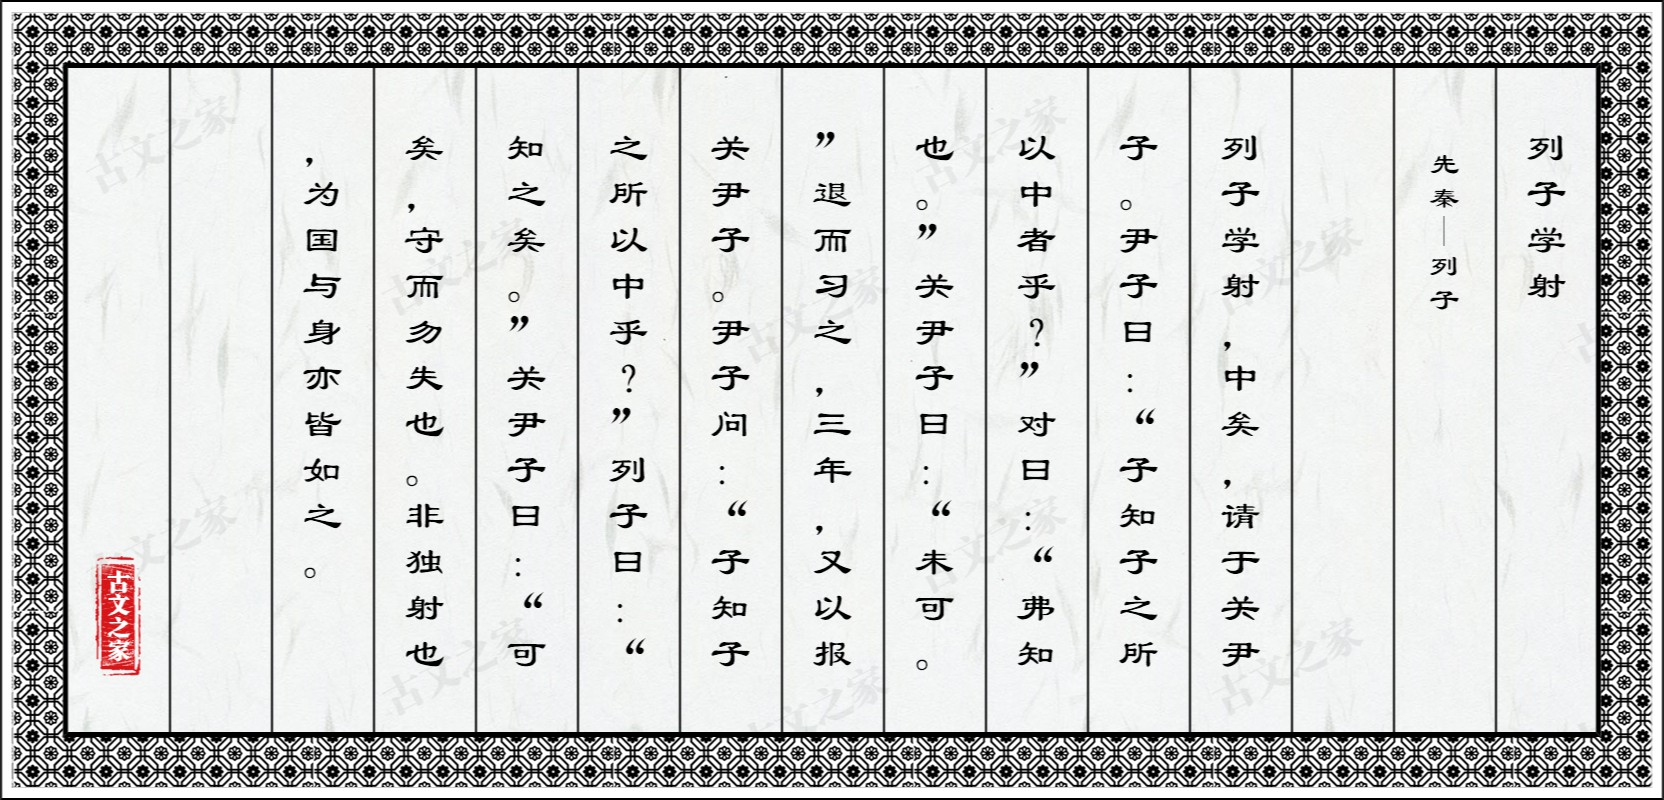 列子学射
先秦—列子
列子学射,中矣,请于关尹
子。尹子曰:“子知子之所
以中者乎?”对曰:“弗知
也。”关尹子曰:“未可。
”退而习之,三年,又以报
关尹子。尹子问:“子知子
之所以中乎?”列子曰:“
知之矣。”关尹子曰:“可
矣,守而勿失也。非独射也
,为国与身亦皆如之。
古文之家